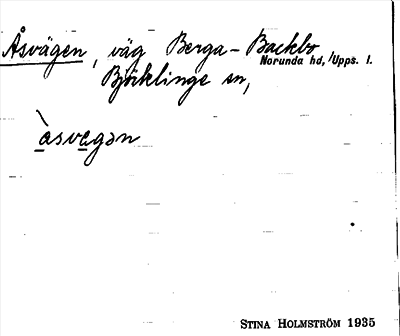 Åsvägen, väg Berga-Backbo
Norunda hd, Upps. l.
Björklinge sn,
àsvegən
STINA HOLMSTRÖM 1935